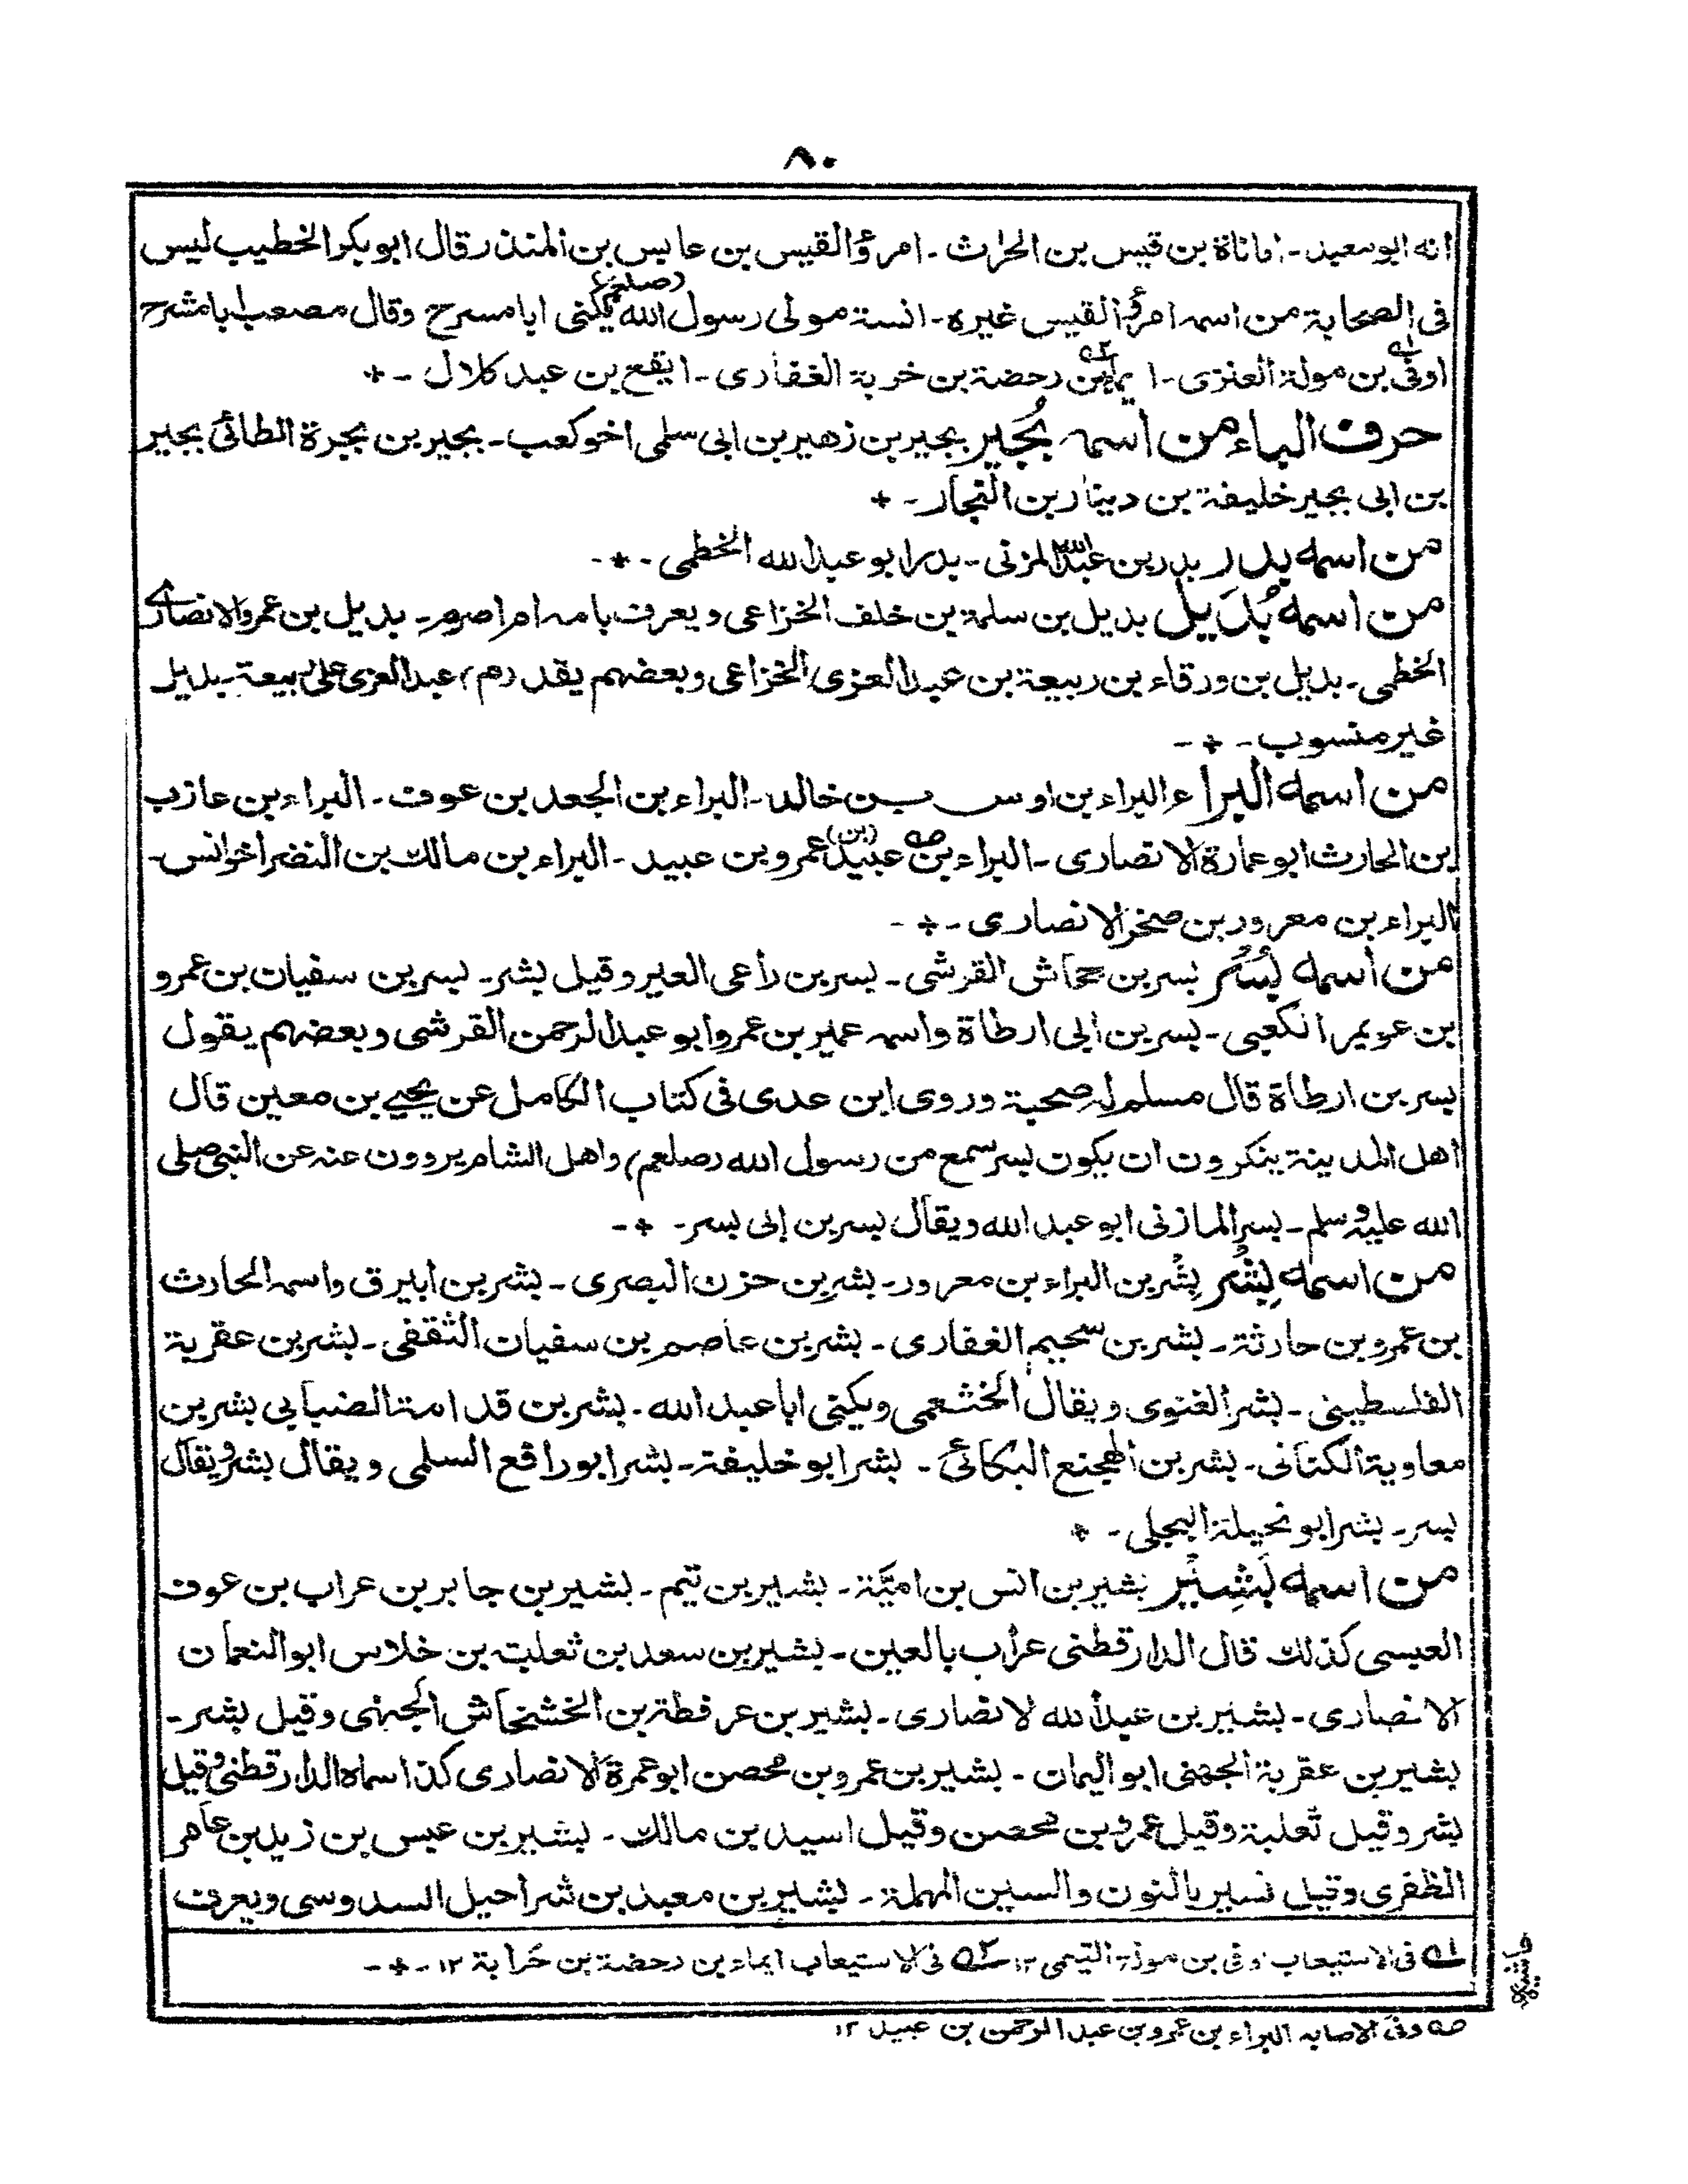 ٨٠
انه ابو سعيد ۔ اماناة بن قيس بن الحارث ۔ امرؤ القيس بن عابس بن المنذر قال ابو بكر الخطيب ليس
فى الصحابة من اسمه امرؤ القيس غيره ۔ انسة مولى رسول الله (صلعم) يكنى ابا مسرح وقال مصعب ابا مشرح
اوفى بن مولة العنزى ۔ ايماء بن رحضة بن خربة الغفارى ۔ ايفع بن عبد كلال ۔ +
حرف الباء من اسمه بُجَير بجير بن زهير بن ابى سلمى اخو كعب ۔ بجير بن بجرة الطائى بجير
بن ابى بجير خليفة بن دينار بن النجار ۔ +
من اسمه بدر بدر بن عبد الله المزنى ۔ بدر ابو عبد الله الخطمى ۔ + ۔
من اسمه بُدَيل بديل بن سلمة بن خلف الخزاعى ويعرف بامه ام اصرم ۔ بديل بن عمرو الانصارے
الخطمى ۔ بديل بن ورقاء بن ربيعة بن عبد العزى الخزاعى وبعضهم يقد (م) عبد العزى على ربيعة ۔ بديل
غير منسوب ۔ + ۔
من اسمه البراء البراء بن اوس بن خالد ۔ البراء بن الجعد بن عوف ۔ البراء بن عازب
بن الحارث ابو عمارة الانصارى ۔ البراء بن عبيد (بن) عمرو بن عبيد ۔ البراء بن مالك بن النضر اخو انس ۔
البراء بن معرور بن صخر الانصارى ۔ + ۔
من اسمه بُسْر بسر بن جحاش القرشى ۔ بسر بن راعى العير وقيل بشر ۔ بسر بن سفيان بن عمرو
بن عويمر الكعبى ۔ بسر بن ابى ارطاة واسمه عمير بن عمرو ابو عبد الرحمن القرشى وبعضهم يقول
بسر بن ارطاة قال مسلم له صحبة وروى ابن عدى فى كتاب الكامل عن يحيے بن معين قال
اهل المدينة ينكرون ان يكون بسر سمع من رسول الله (صلعم) واهل الشام يروون عنه عن النبى صلى
الله عليه وسلم ۔ بسر المازنى ابو عبد الله ويقال بسر بن ابى بسر ۔ + ۔
من اسمه بِشْر بِشْر بن البراء بن معرور ۔ بشر بن حزن البصرى ۔ بشر بن ابيرق واسمه الحارث
بن عمرو بن حارثة ۔ بشر بن سحيم الغفارى ۔ بشر بن عاصم بن سفيان الثقفى ۔ بشر بن عقربة
الفلسطينى ۔ بشر الغنوى ويقال الخثعمى ويكنى ابا عبد الله ۔ بشر بن قدامة الضبابى بشر بن
معاوية الكنانى ۔ بشر بن الهجنع البكائى ۔ بشر ابو خليفة ۔ بشر ابو رافع السلمى ويقال بشر ويقال
بسر ۔ بشر ابو نحيلة البجلى ۔ +
من اسمه بَشِيْر بشير بن انس بن اميّة ۔ بشير بن تيم ۔ بشير بن جابر بن عراب بن عوف
العبسى كذلك قال الدارقطنى عراب بالعين ۔ بشير بن سعد بن ثعلبة بن خلاس ابو النعمان
الانصارى ۔ بشير بن عبد الله لانصارى ۔ بشير بن عرفطة بن الخشخاش الجهنى وقيل بشر ۔
بشير بن عقربة الجهنى ابو اليمان ۔ بشير بن عمرو بن محصن ابو عمرة الانصارى كذا سماه الدارقطنى وقيل
بشر وقيل ثعلبة وقيل عمرو بن محصن وقيل اسيد بن مالك ۔ بشير بن عبس بن زيد بن عامر
الظفرى وقيل نسير بالنون والسين المهملة ۔ بشير بن معبد بن شراحيل السدوسى ويعرف
ص١ فى الاستيعاب اوفى بن مولة التيمى ١٢ ص٢ فى الاستيعاب ايماء بن رحضة بن خَرابة ١٢ ۔ + ۔
حاشيه
صه وفى الاصابه البراء بن عمرو بن عبد الرحمن بن عبيد ١٢